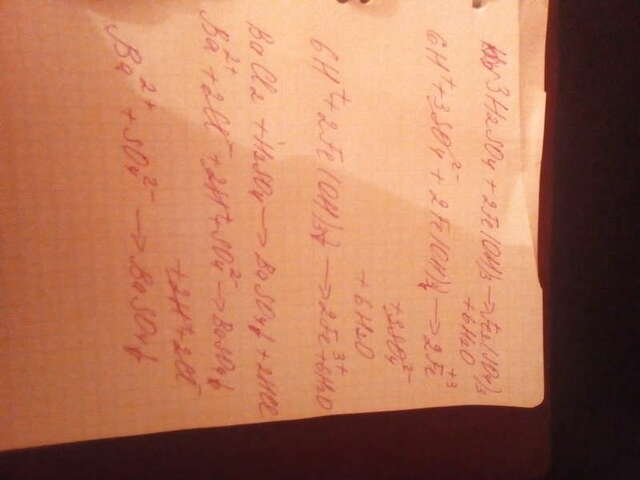 3H2SO4 + 2Fe(OH)3 → Fe2(SO4)3
+ 6H2O
6H⁺ + 3SO4²⁻ + 2Fe(OH)3↓ → 2Fe⁺³
+ 3SO4²⁻
+ 6H2O
6H⁺ + 2Fe(OH)3↓ → 2Fe³⁺ + 6H2O
BaCl2 + H2SO4 → BaSO4↓ + 2HCl
Ba²⁺ + 2Cl⁻ + 2H⁺ + SO4²⁻ → BaSO4↓
+ 2H⁺ + 2Cl⁻
Ba²⁺ + SO4²⁻ → BaSO4↓